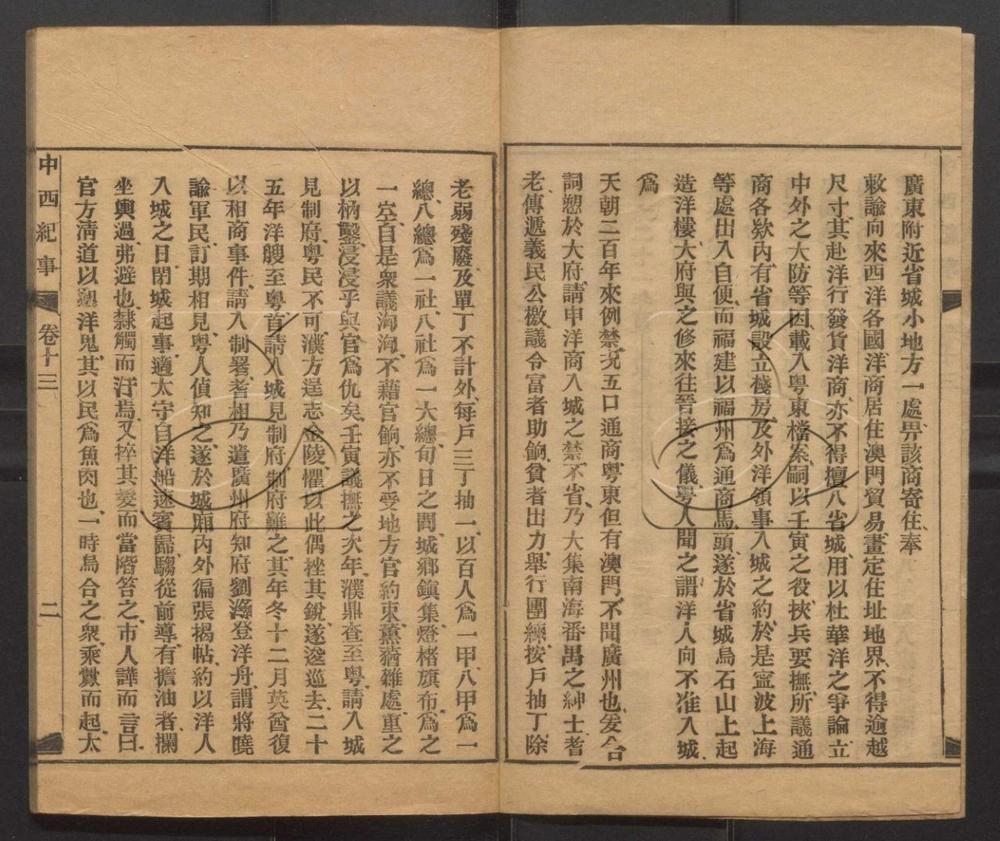 廣東附近省城小地方一處畀該商寄住奉
敕諭向來西洋各國洋商居住澳門貿易畫定住址地界不得逾越
尺寸其赴洋行發貨洋商亦不得擅入省城用以杜華洋之爭論立
中外之大防等因載入粵東檔案嗣以壬寅之役挾兵要撫所議通
商各欵內有省城設立棧房及外洋領事入城之約於是寗波上海
等處出入自便而福建以福州爲通商馬頭遂於省城烏石山上起
造洋樓大府與之修來往晉接之儀粵人聞之謂洋人向不准入城
爲
天朝二百年來例禁况五口通商粵東但有澳門不聞廣州也爰合
詞愬於大府請申洋商入城之禁不省乃大集南海番禺之紳士耆
老傳遞義民公檄議令富者助餉貧者出力舉行團練按戶抽丁除
老弱殘廢及單丁不計外每戶三丁抽一以百人爲一甲八甲爲一
總八總爲一社八社爲一大總旬日之間城鄉鎭集燈楮旗布爲之
一空自是衆議洶洶不藉官餉亦不受地方官約束薰蕕雜處重之
以枘鑿浸浸乎與官爲仇矣壬寅議撫之次年濮鼎查至粵請入城
見制府粵民不可濮方逞志金陵懼以此偶挫其銳遂逡巡去二十
五年洋艘至粵首請入城見制府制府難之其年冬十二月英酋復
以相商事件請入制署耆相乃遣廣州府知府劉潯登洋舟謂將曉
諭軍民訂期相見粵人偵知之遂於城廂內外徧張揭帖約以洋人
入城之日閉城起事適太守自洋船遄審歸騶從前導有擔油者攔
坐輿過弗避也隸觸而汙焉又捽其髮而當階笞之市人譁而言曰
官方淸道以迓洋鬼其以民爲魚肉也一時烏合之衆乘釁而起太
中西紀事
卷十三
二